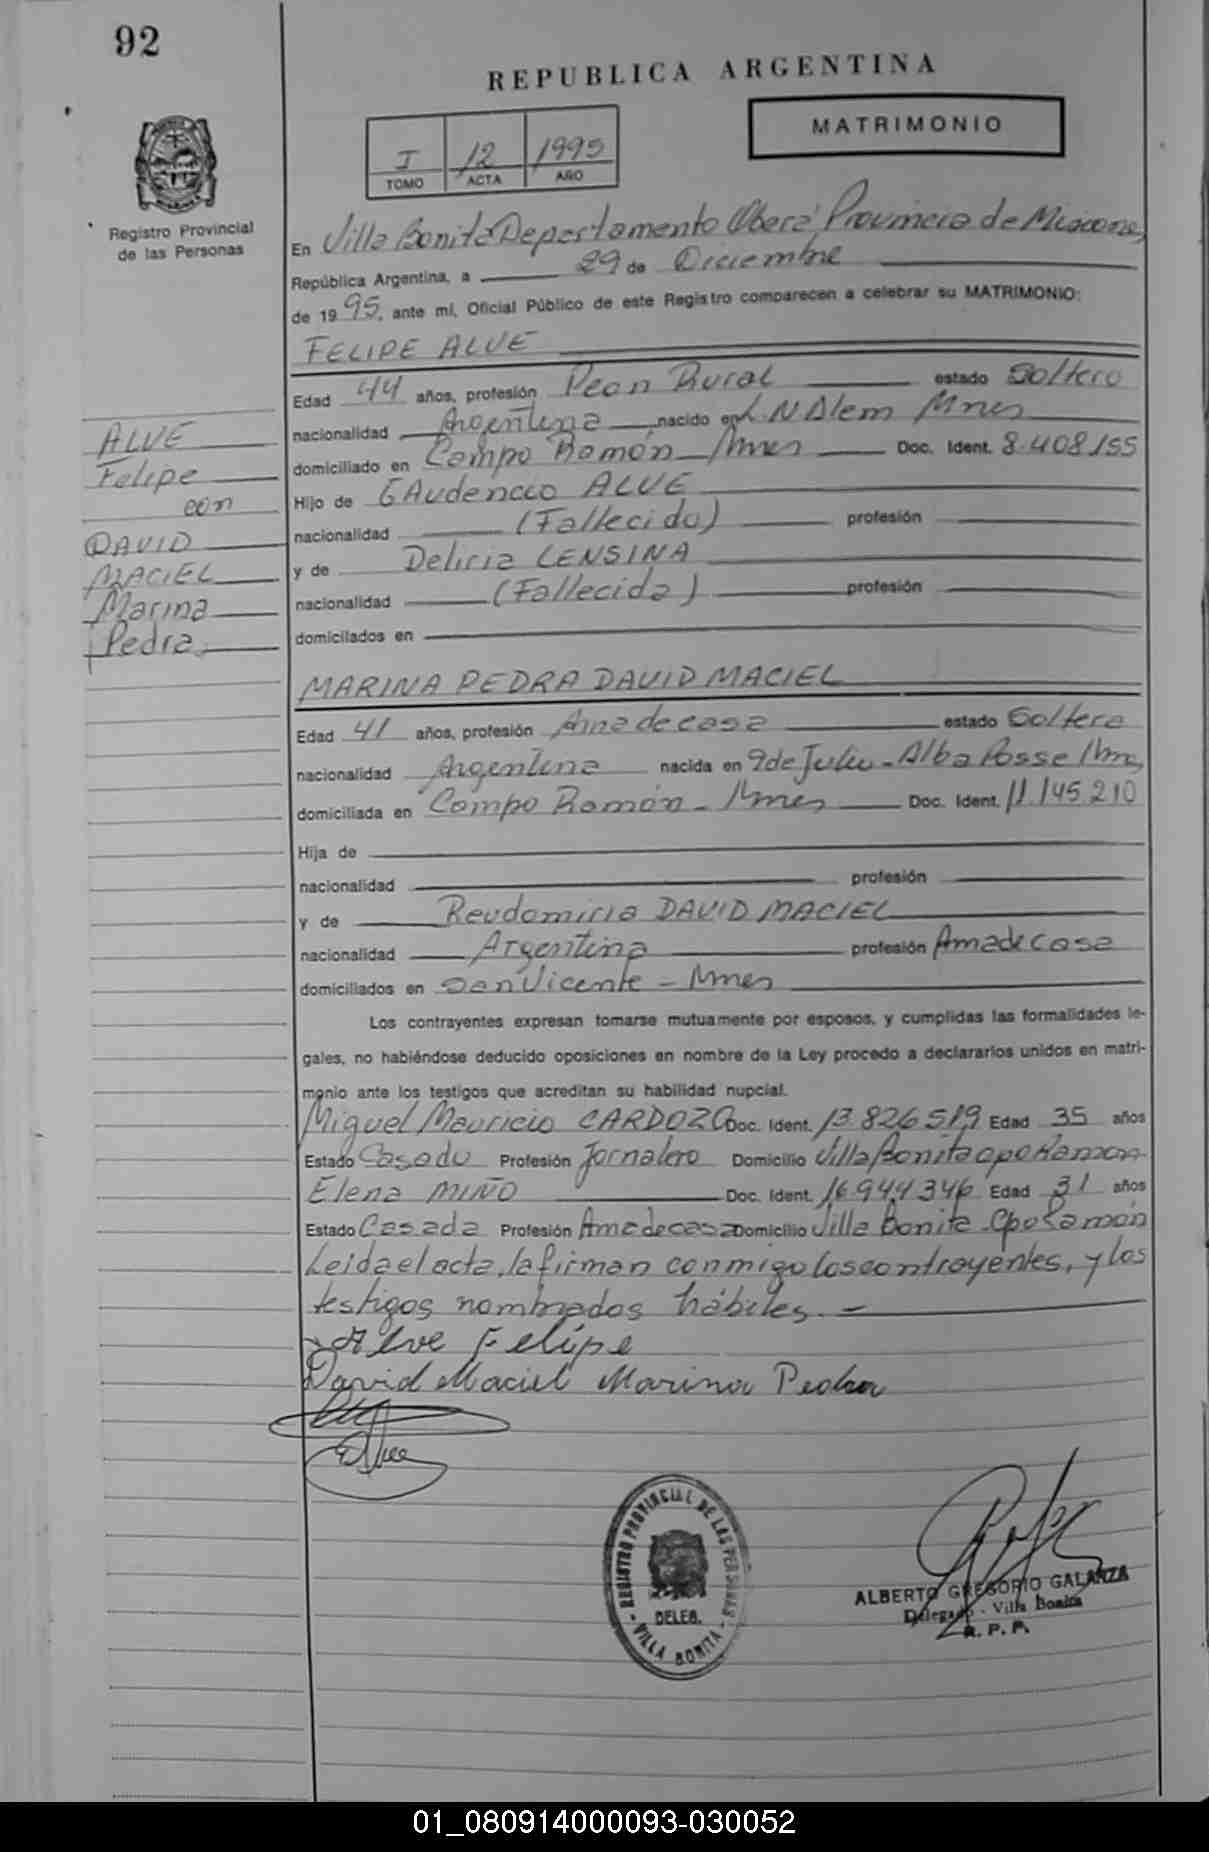 92
REPUBLICA ARGENTINA
MATRIMONIO
I 12 1995
TOMO ACTA AÑO
Registro Provincial
de las Personas
En Villa Bonita Departamento Oberá Provincia de Misiones,
República Argentina, a 29 de Diciembre
de 1995, ante mí, Oficial Público de este Registro comparecen a celebrar su MATRIMONIO:
FELIPE ALVE
Edad 44 años, profesión Peon Rural estado Soltero
nacionalidad Argentina nacido en L.N Alem Mnes
domiciliado en Campo Ramón - Mnes Doc. Ident. 8.408155
Hijo de GAudencio ALVE
nacionalidad (Fallecido) profesión
y de Delicia LENSINA
nacionalidad (Fallecida) profesión
domiciliados en
ALVE
Felipe
con
DAVID
MACIEL
Marina
Pedra
MARINA PEDRA DAVID MACIEL
Edad 41 años, profesión Ama de casa estado Soltera
nacionalidad Argentina nacida en 9 de Julio - Alba Posse Mnes
domiciliada en Campo Ramón - Mnes Doc. Ident. 11.145.210
Hija de
nacionalidad profesión
y de Reudomiria DAVID MACIEL
nacionalidad Argentina profesión Ama de Casa
domiciliados en San Vicente - Mnes
Los contrayentes expresan tomarse mutuamente por esposos, y cumplidas las formalidades le-
gales, no habiéndose deducido oposiciones en nombre de la Ley procedo a declararlos unidos en matri-
monio ante los testigos que acreditan su habilidad nupcial.
Miguel Mauricio CARDOZO Doc. Ident. 13.826519 Edad 35 años
Estado Casado Profesión Jornalero Domicilio Villa Bonita cpo Ramon
Elena MIÑO Doc. Ident. 16.944.346 Edad 31 años
Estado Casada Profesión Ama de casa Domicilio Villa Bonita - Cpo Ramón
Leida el acta, la firman conmigo los contrayentes, y los
testigos nombrados hábiles. -
Alve Felipe
David Maciel Marina Pedra
REGISTRO PROVINCIAL DE LAS PERSONAS
DELEG.
- VILLA BONITA -
ALBERTO GREGORIO GALARZA
Delegado - Villa Bonita
R. P. P.
01_080914000093-030052